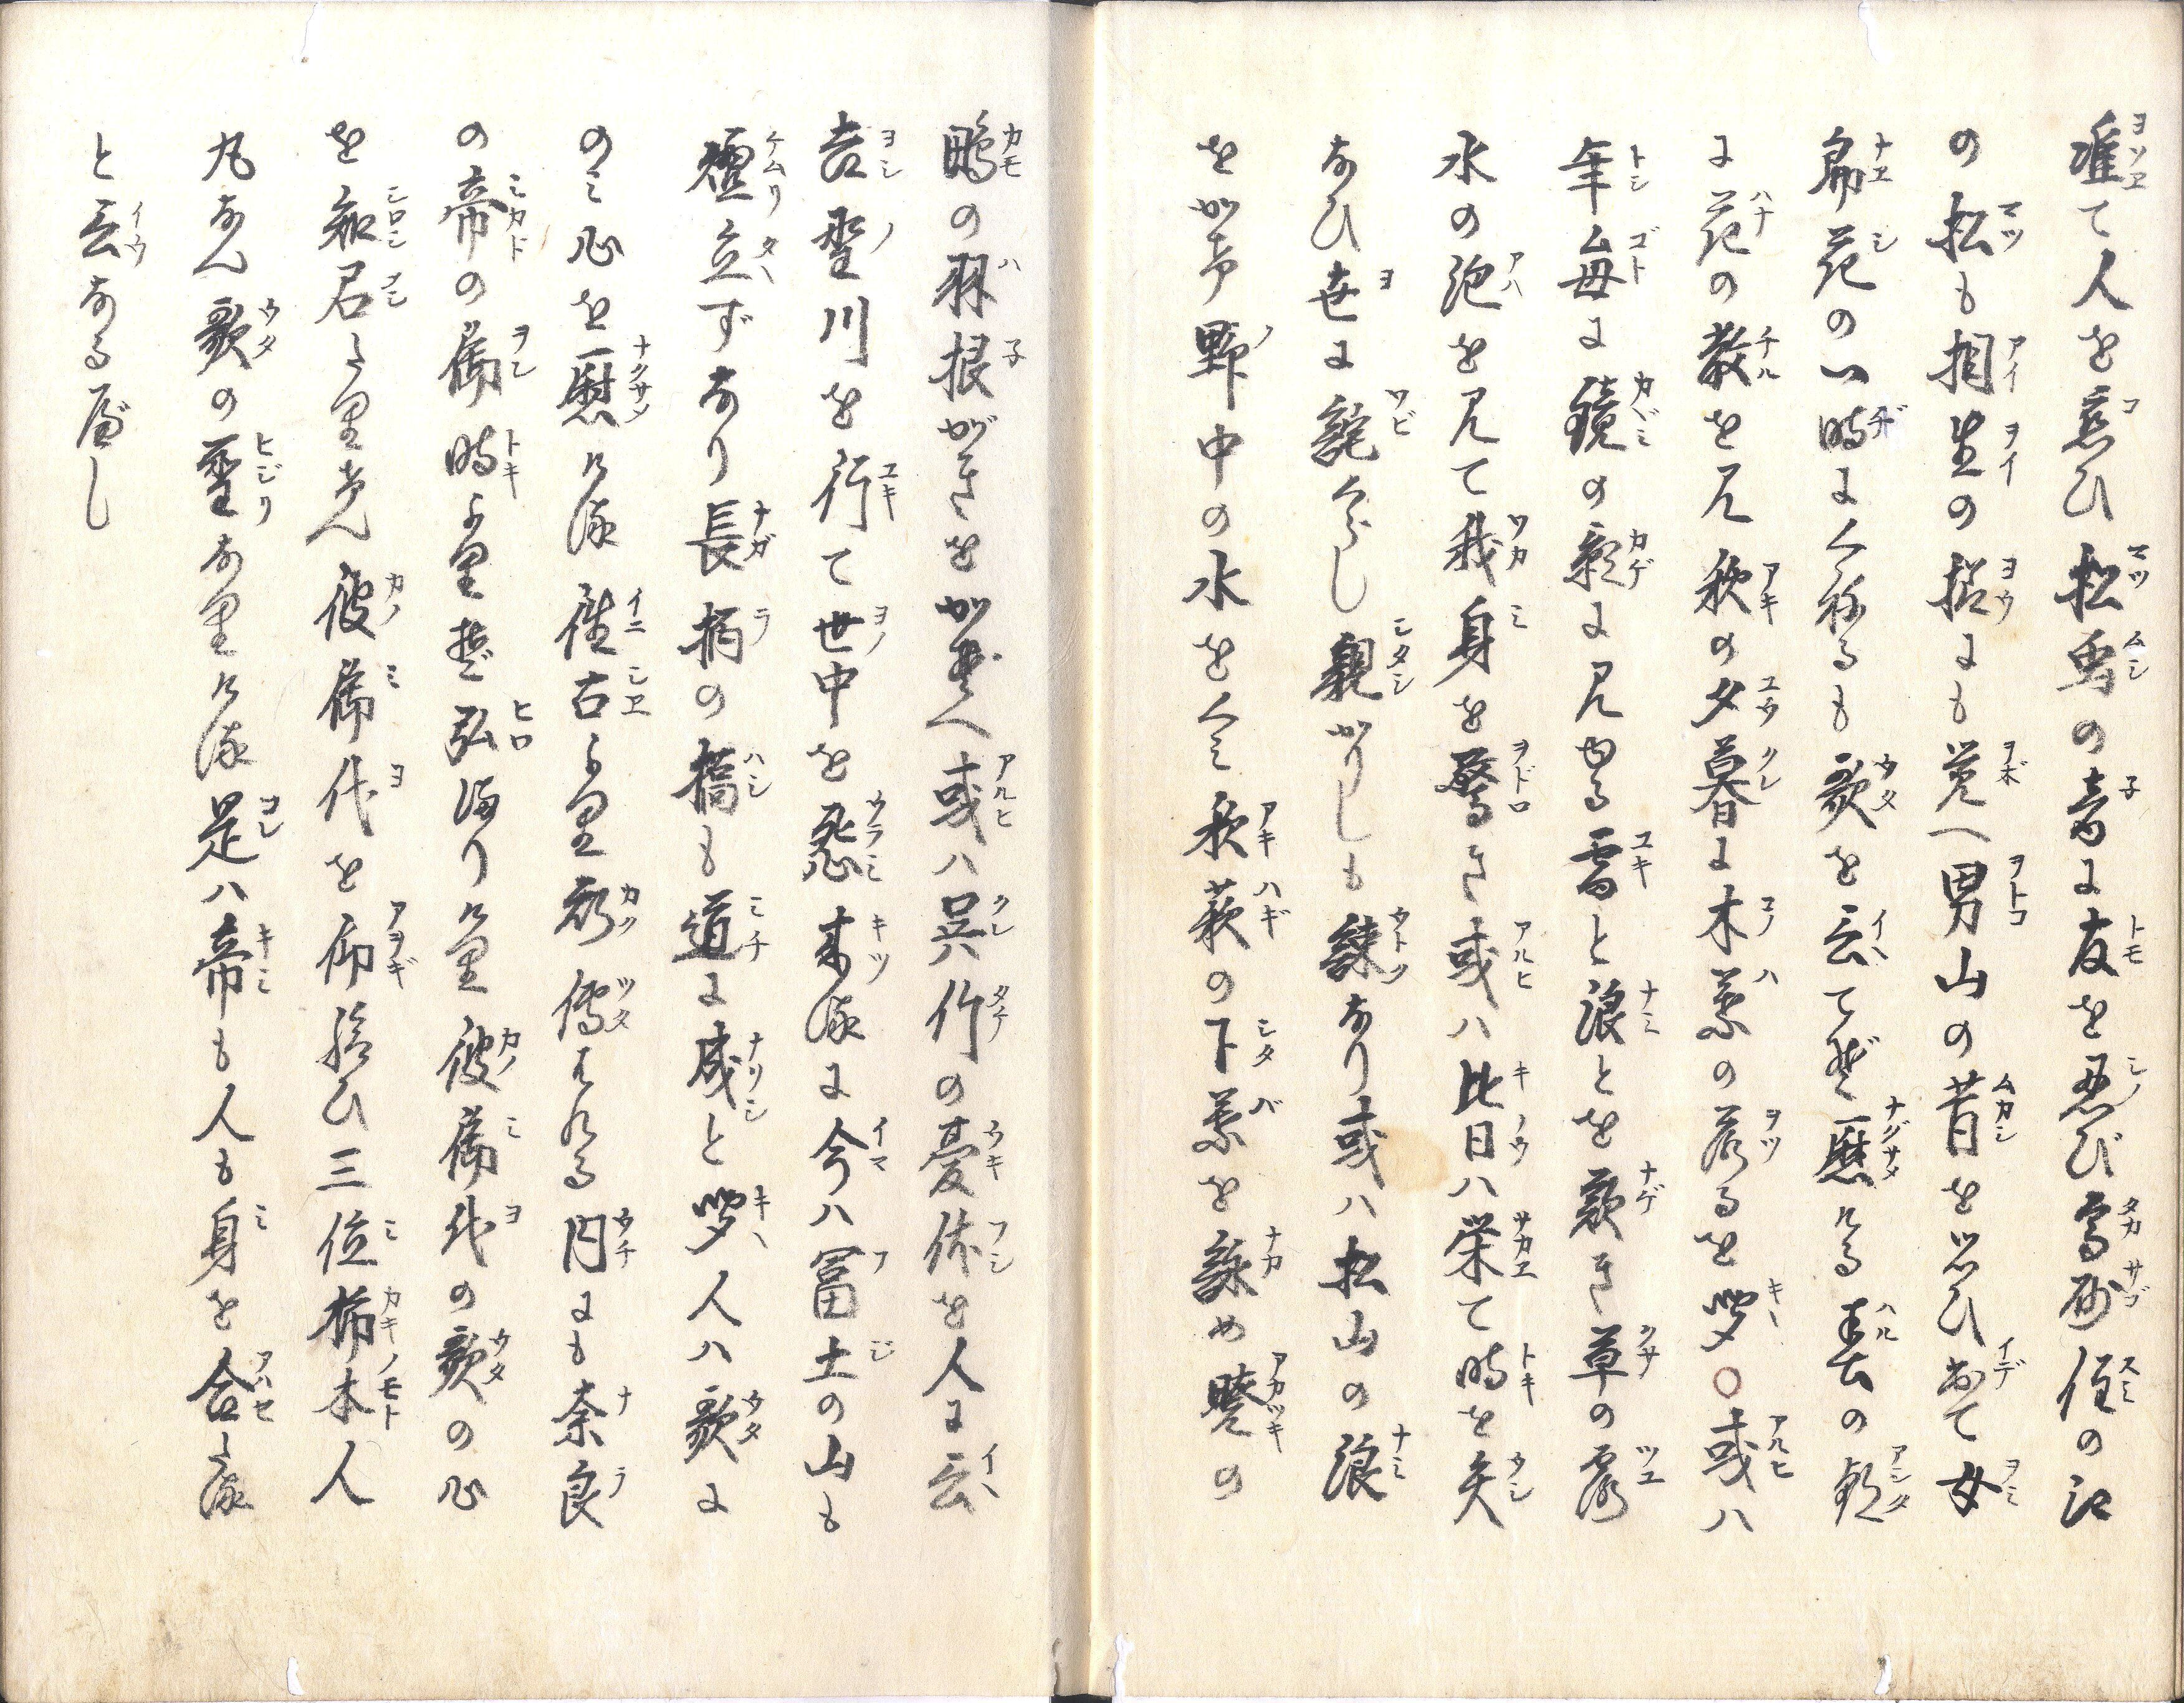 准て人を恋ひ松虫の音に友を忍び高砂住の江
の松も相生の様にも覚へ男山の昔を思ひ出て女
郎花の一時にくねるも歌を云てぞ慰ける春の朝
に花の散を見秋の夕暮に木葉の落るを聞○或ハ
年毎に鏡の影に見ゆる雪と浪とを歎き草の露
水の泡を見て我身を驚き或ハ昨日ハ栄て時を失
なひ世に詫くらし親かりしも疎なり或ハ松山の浪
をかけ野中の水をくミ秋萩の下葉を詠め暁の
鴫の羽根がきをかぞへ或ハ呉竹の憂休を人に云
吉野川を行て世中を怨来ぬるに今ハ冨士の山も
煙立ずなり長柄の橋も道に成と聞人ハ歌に
のミ心を慰ける往古より形傳はれる内にも奈良
の帝の御時よりぞ弘まりける彼御代の歌の心
を知召たりけん彼御代を仰給ひ三位柿本人
丸なん歌の聖なりける是ハ帝も人も身を合たる
と云なるべし